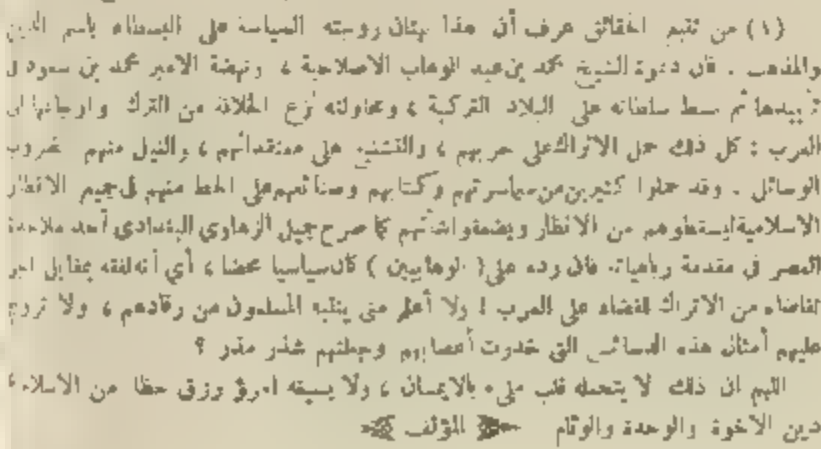 (١) من تتبع الحقائق عرف أن هذا بهتان روجته السياسة على البسطاء باسم الدين
والمذهب . فان دعوة الشيخ محمد بن عبد الوهاب الاصلاحية ، ونهضة الامير محمد بن سعود في
تأييدها ثم بسط سلطانه على البلاد التركية ، ومحاولته نزع الخلافة من الترك وارجاعها الى
العرب : كل ذلك حمل الاتراك على حربهم ، والتشنيع على معتقداتهم ، والنيل منهم بضروب
الوسائل . وقد حملوا كثيرين من سماسرتهم وكتابهم وصنائعهم على الحط منهم في جميع الاقطار
الاسلامية ليسقطوهم من الانظار ويضعفوا شأنهم كما صرح جميل الزهاوي البغدادي أحد ملاحدة
العصر في مقدمة رباعياته فان رده على ( الوهابيين ) كان سياسيا محضا ، أي أنه لفقه بمقابل اجر
تقاضاه من الاتراك للقضاء على العرب ! ولا أعلم متى ينتبه المسلمون من رقادهم ، ولا تروج
عليهم أمثال هذه الدسائس التي خدرت أعصابهم وجعلتهم شذر مذر ؟
اللهم ان ذلك لا يتحمله قلب مليء بالايمان ، ولا يسيغه امرؤ رزق حظا من الاسلام
دين الاخوة والوحدة والوئام المؤلف